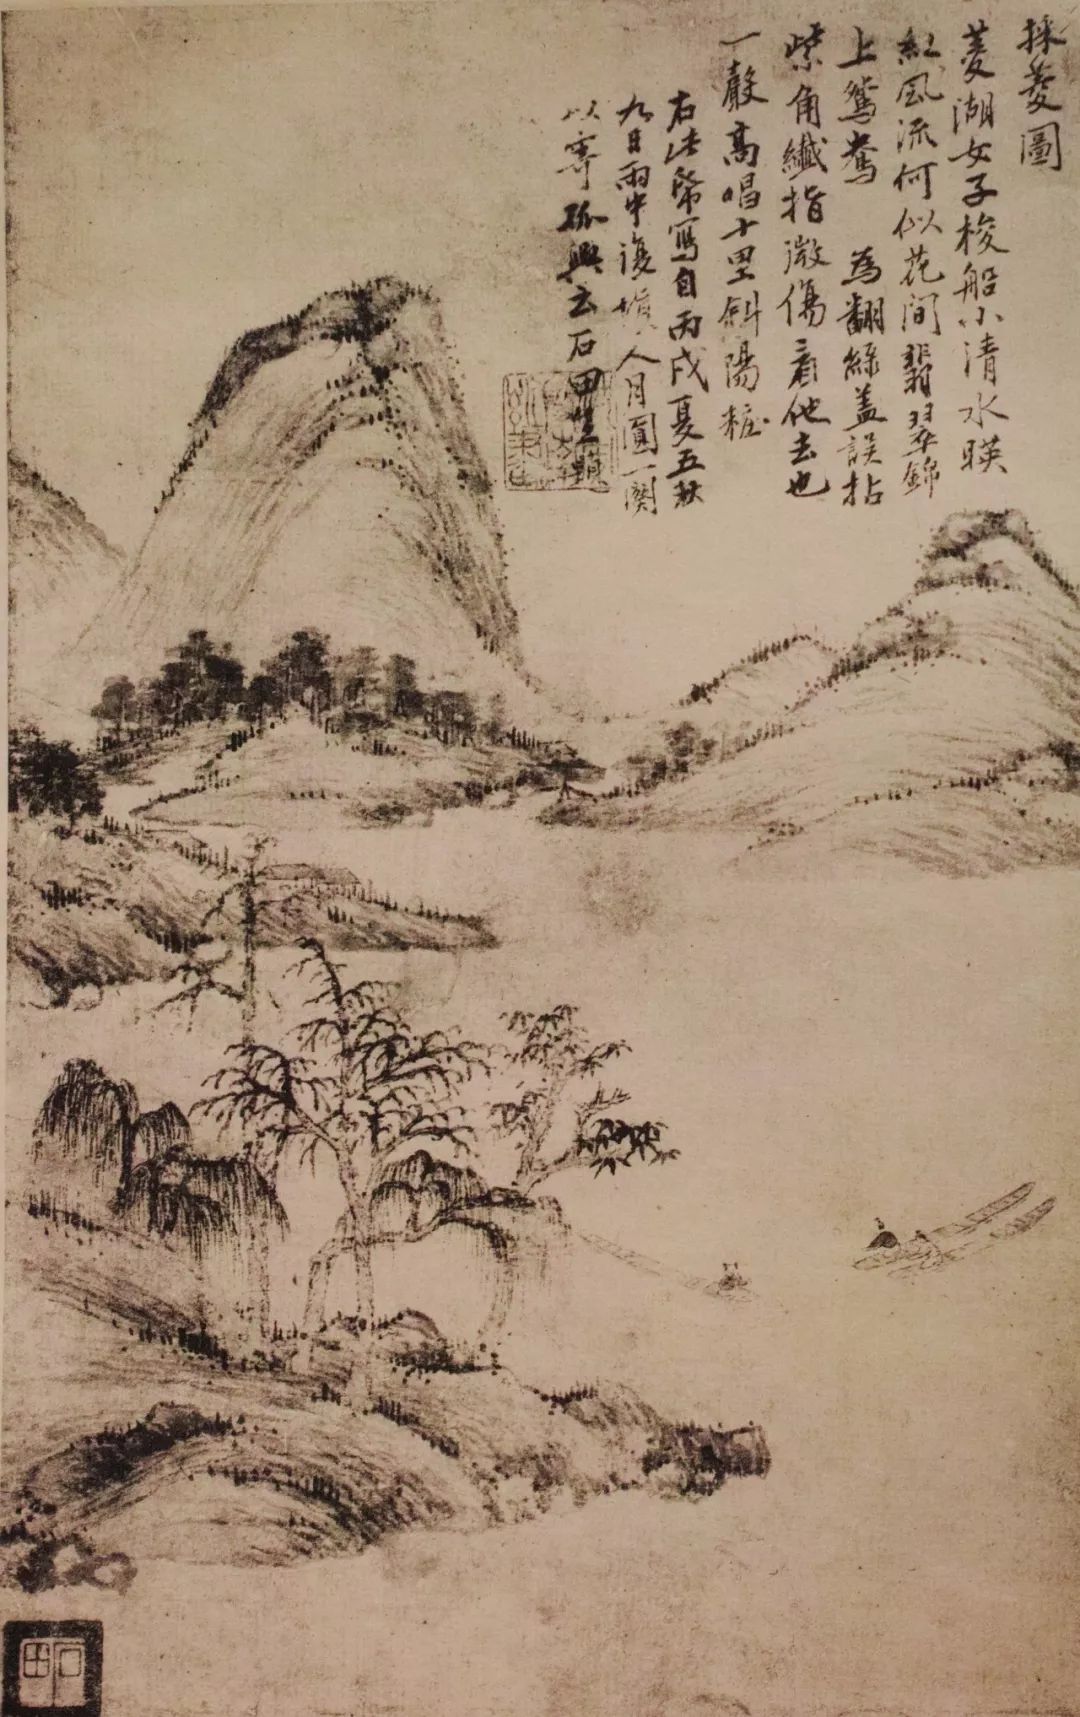 採菱圖
菱湖女子梭船小清水暎
紅風流何似花間翡翠錦
上鴛鴦 為翻綠盖誤拈
紫角纖指微傷看他去也
一聲高唱十里斜陽
右此幣寫自丙戌夏五秋
九日雨中復填人月圓一闋
以寄孤興云石田生題
石田